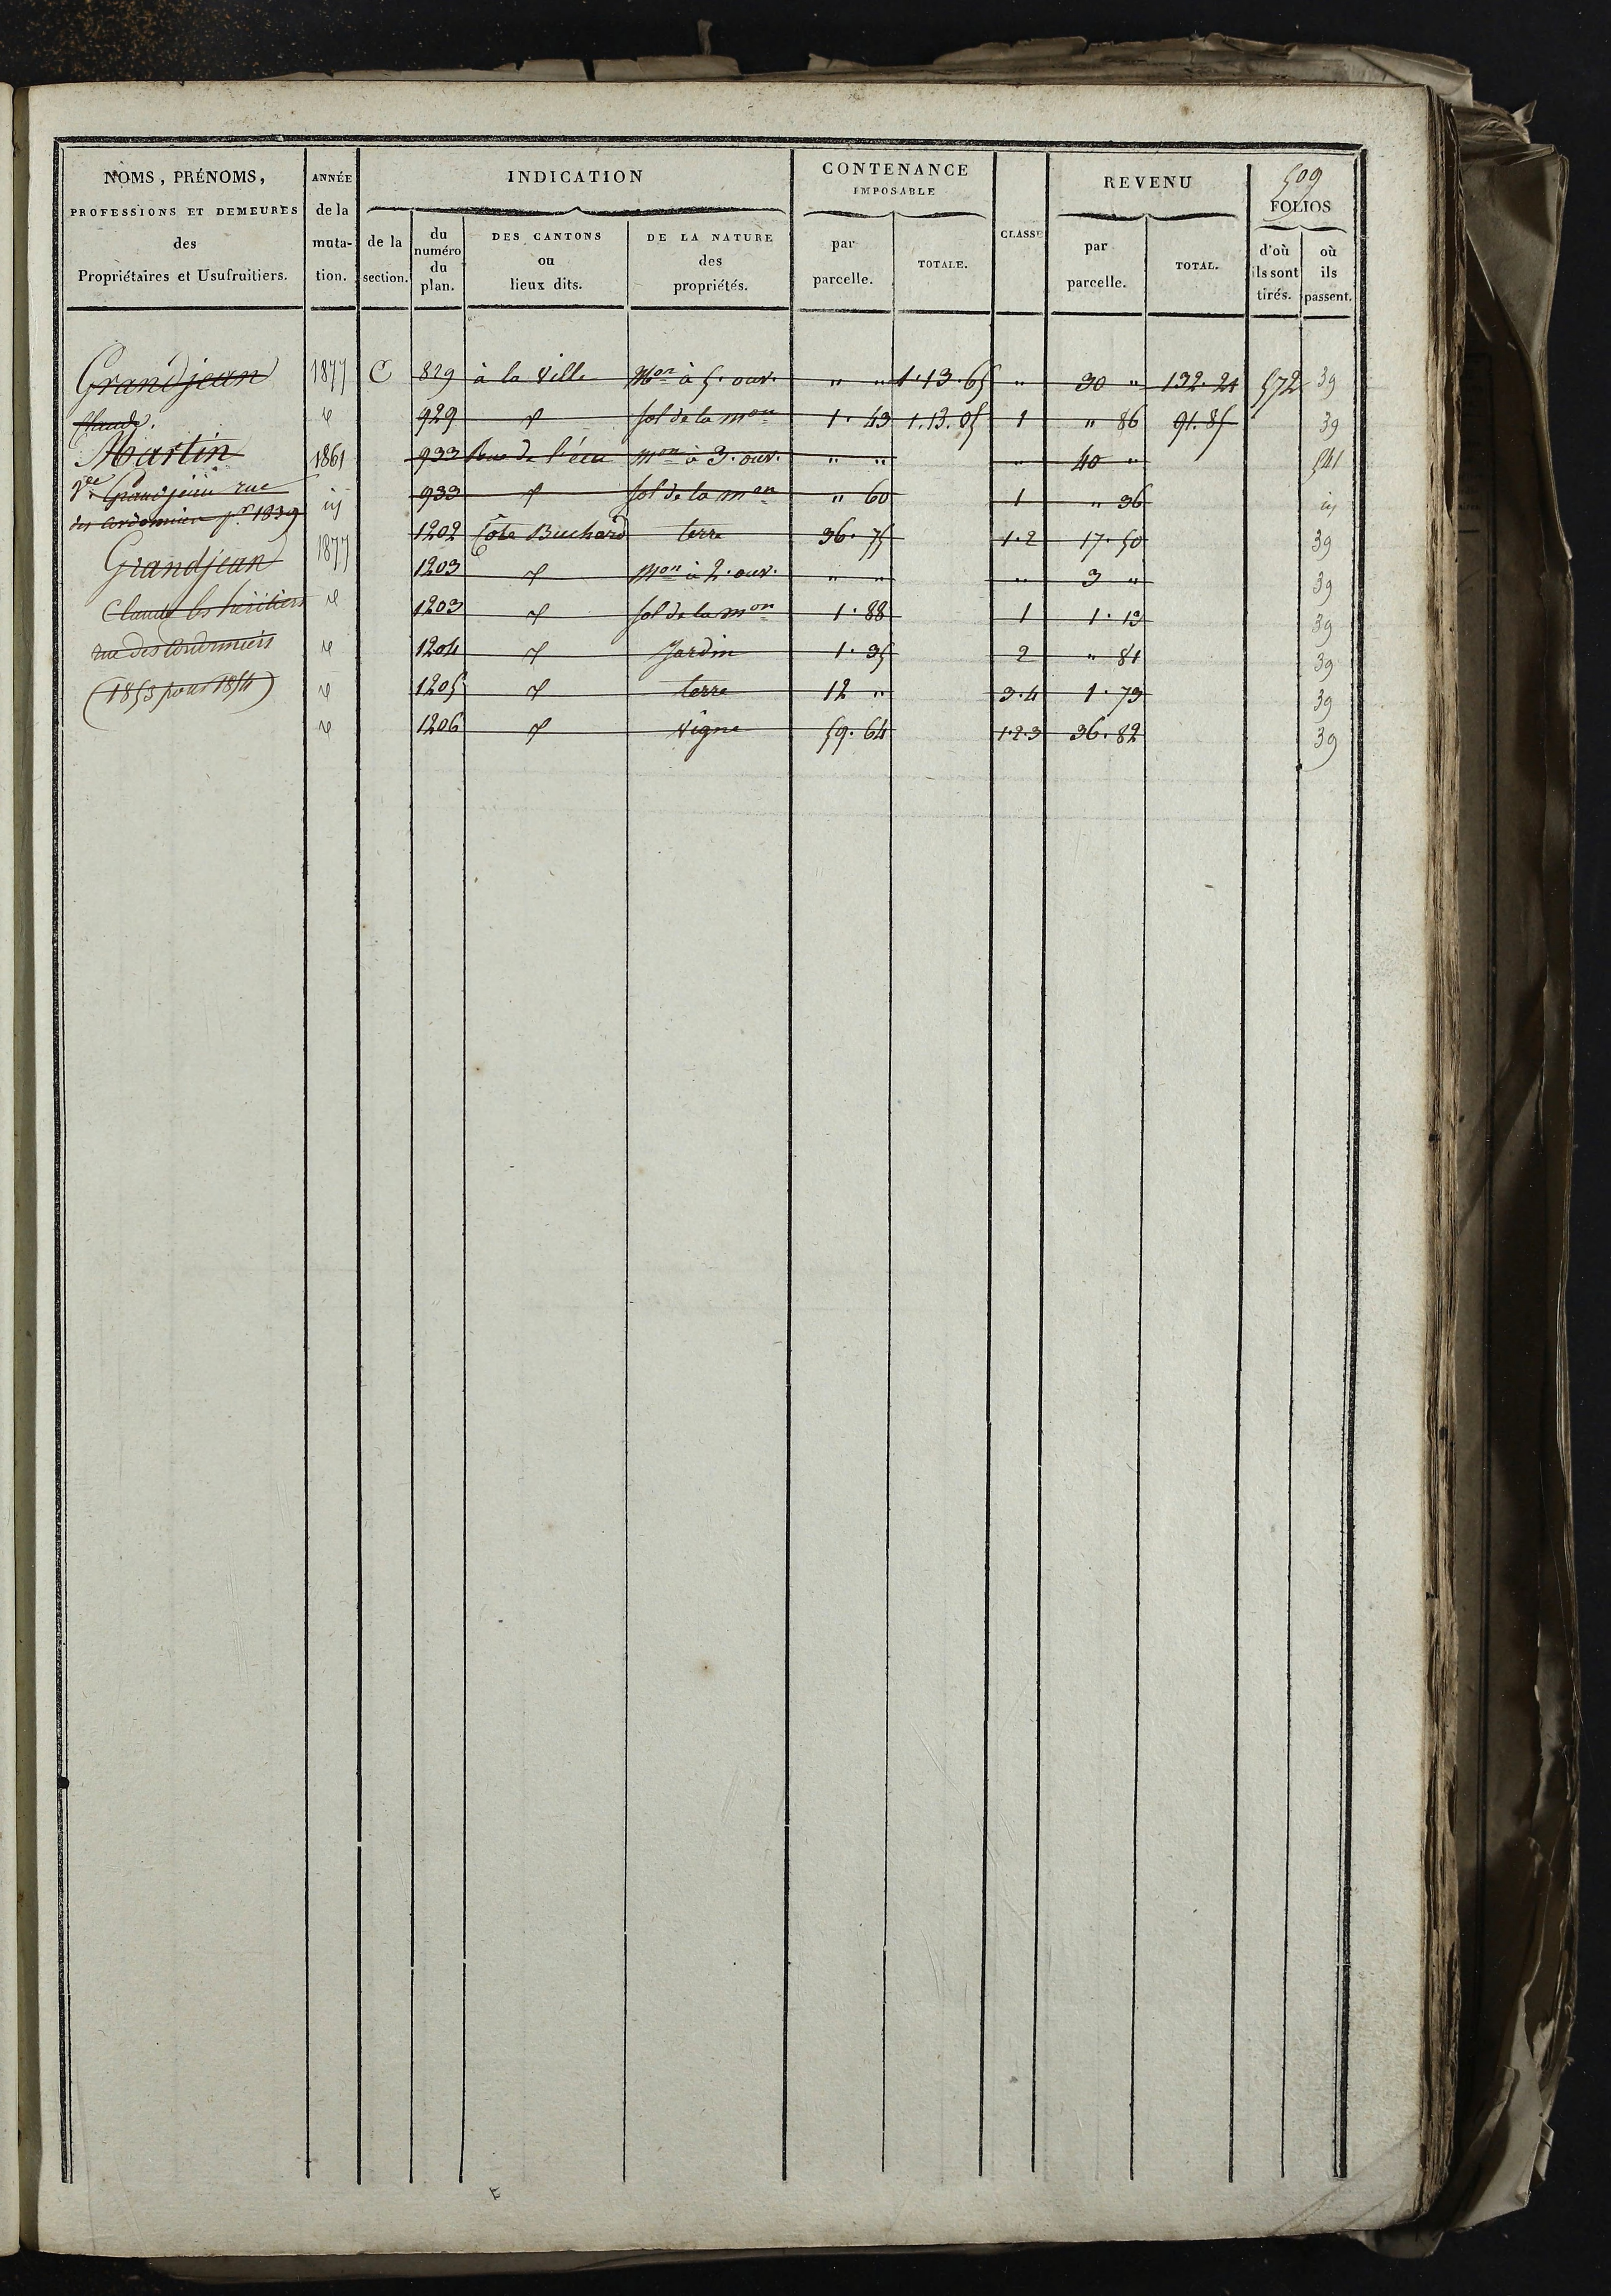 509
NOMS, PRÉNOMS,
PROFESSIONS ET DEMEURES
des
Propriétaires et Usufruitiers.
ANNÉE
de la
muta-
tion.
INDICATION
de la
section.
du
numéro
du
plan.
DES CANTONS
ou
lieux dits.
DE LA NATURE
des
propriétés.
CONTENANCE
IMPOSABLE
par
parcelle.
TOTALE.
CLASSE
REVENU
par
parcelle.
TOTAL.
FOLIOS
d'où
ils sont
tirés.
où
ils
passent.
Grandjean 1877 C 829 à la Ville Mon à 5. ouv. " " 1.13.65 " 30 " 132.21 572 39
Claude. id 929 id sol de la mon 1.43 1.13.05 1 " 86 91.85 39
Martin 1861 933 Rue de l'écu mon à 3. ouv. " " " 40 " 541
Vve Grandjean rue id 933 id sol de la mon " 60 1 " 36 id
des Cordonniers pr. 1839
1202 Côte Buchard terre 36.75 1.2 17.50 39
Grandjean 1877 1203 id mon à 2. ouv. " " " 3 " 39
Claude les héritiers id 1203 id sol de la mon 1.88 1 1.13 39
rue des Cordonniers id 1204 id Jardin 1.35 2 " 81 39
(1853 pour 1854) id 1205 id terre 12 " 3.4 1.73 39
id 1206 id Vigne 59.64 1.2.3 36.82 39